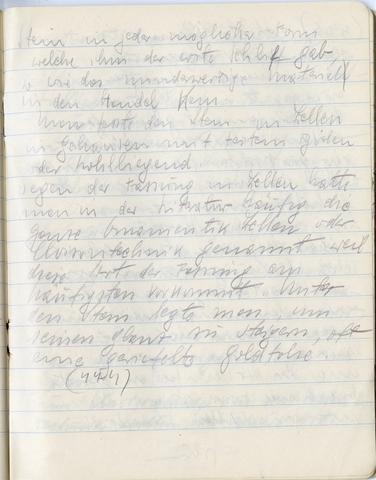 Stein in jeder möglichen Form
welche ihm der erste Schliff gab,
so wie das minderwertige Material
in den Handel kam
Man setzte den Stein in Zellen
in Gehäusen mit festem Boden
oder hohlliegend
wegen der Fassung in Zellen hatte
man in der Literatur häufig die
ganze Ornamentik Zellen oder
Cloisontechnik genannt weil
diese Art der Fassung am
häufigsten vorkommt. Unter
den Stein legte man, um
seinen Glanz zu steigern, oft
eine geriefelte Goldfolie